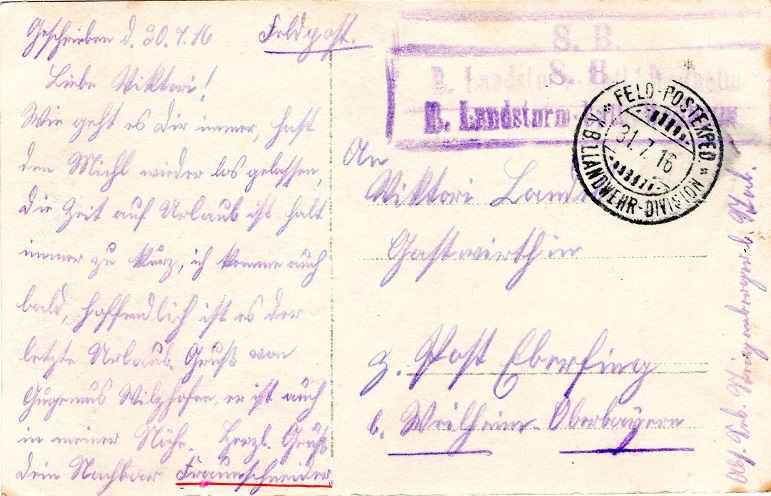 Geschrieben d. 30.7.16 Feldpost.
Liebe Viktori!
Wie geht es Dir immer, hast
den Michl wieder los gelassen,
die Zeit auf Urlaub ist halt
immer zu kurz, ich komme auch
bald, hoffendlich ist es der
letzte Urlaub. Gruß von
Gugemus Wilzhofen, er ist auch
in meiner Nähe. Herzl. Gruß
dein Nachbar
S. B.
S. B.
B. Landsturm
FELD-POSTEXPED.
31.7.16
K.B.1.LANDWEHR-DIVISION
An
Viktori
Gastwirthin
z. Post Eberfing
b. Weilheim-Oberbayern